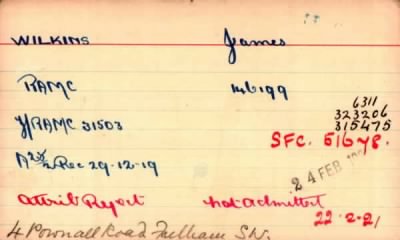 WILKINS James
RAMC 146199
6311
323206
315475
Y/RAMC 31503
SFC. 51678.
Rec 29-12-19
24 FEB
attrib Reject not admitted
22-2-21
4 Pownall Road Fulham S.W.